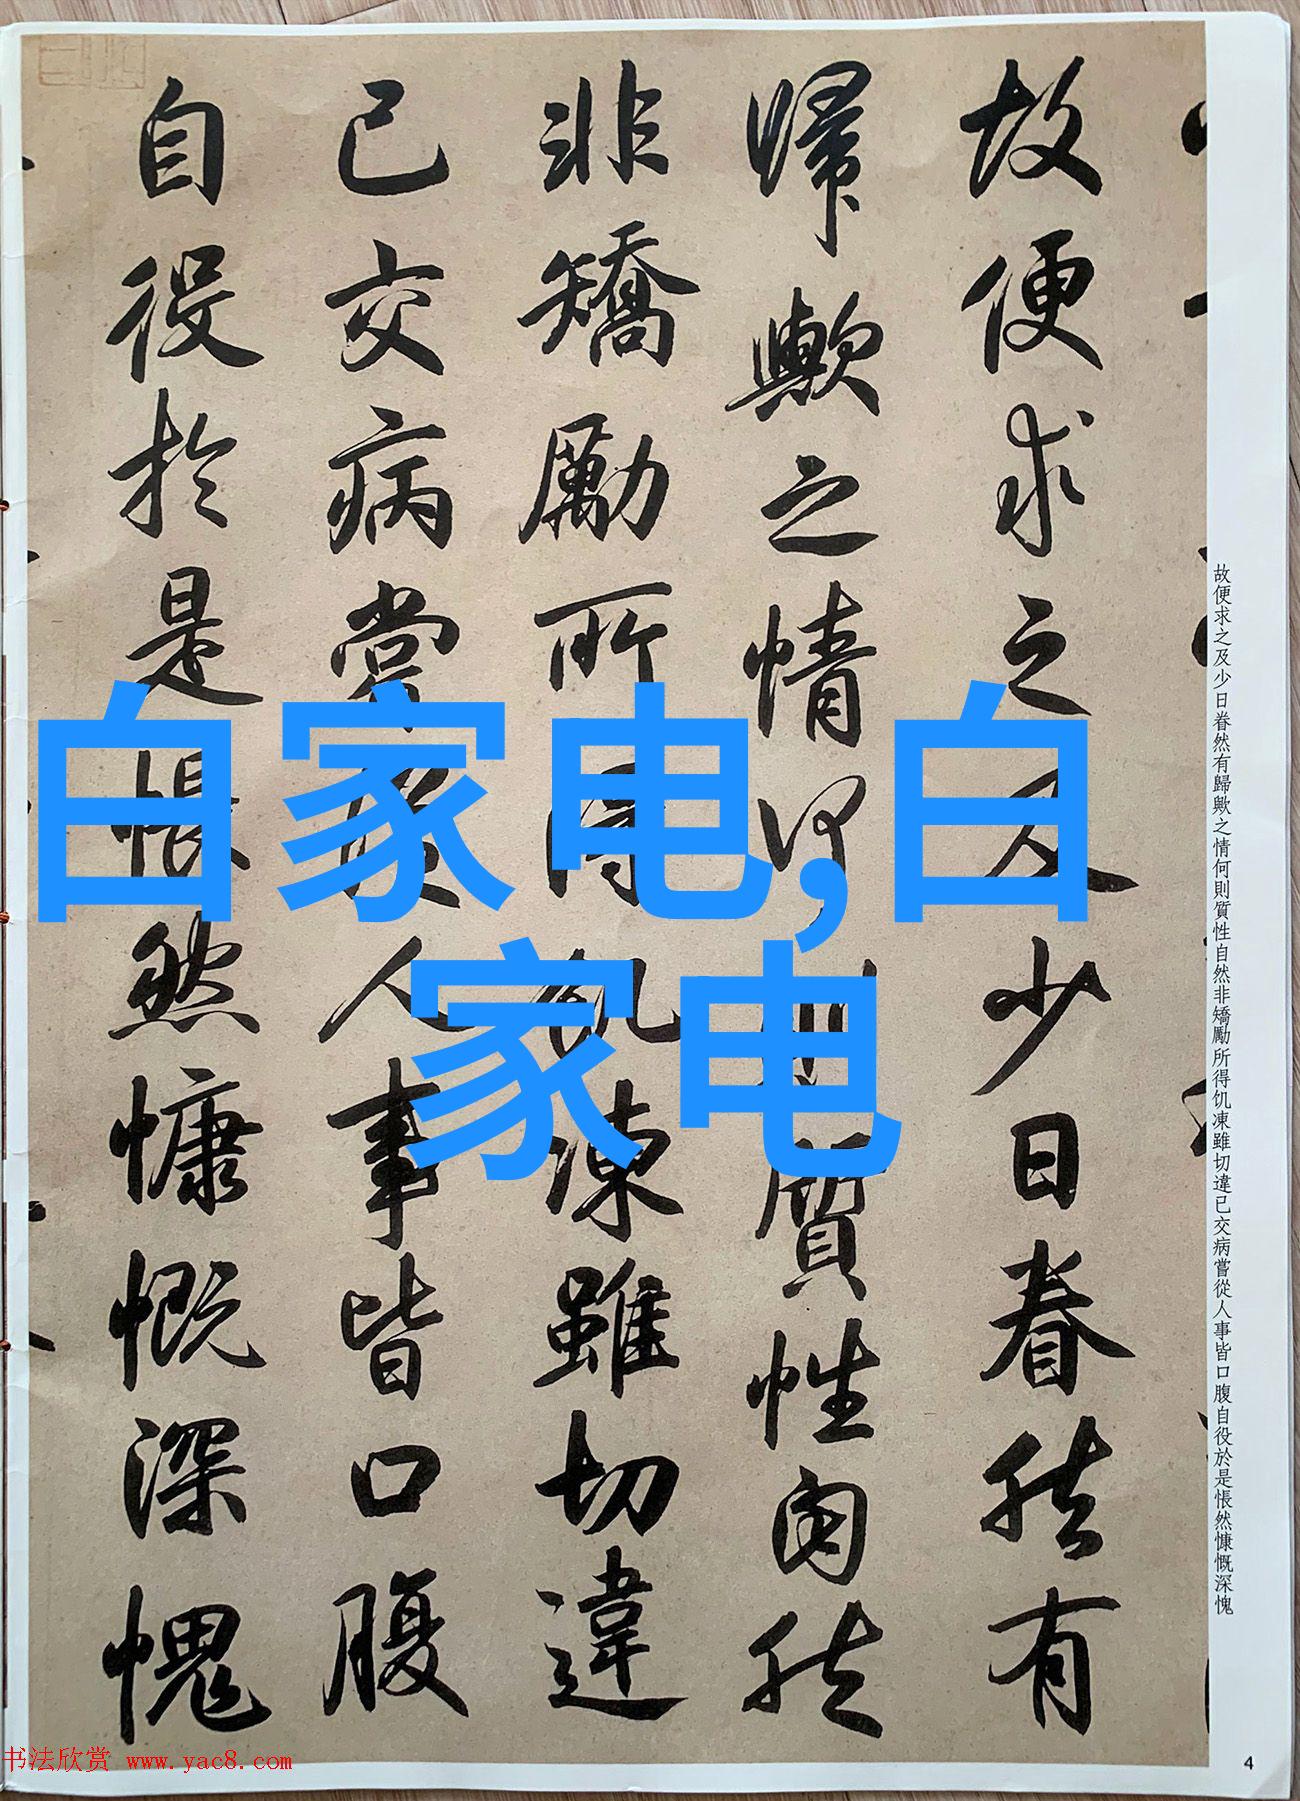 故便求之及少日眷然有歸歟之情何則質性自然非矯勵所得饥凍雖切違已交病嘗從人事皆口腹自役於是悵然慷慨深愧
故便求之及少日眷然有
歸歟之情何質性自然
非矯勵所得飢凍雖切違
已交病嘗從人事皆口腹
自役於是悵然慷慨深愧
白家电,白
家电
书法欣赏 www.yac8.com
4